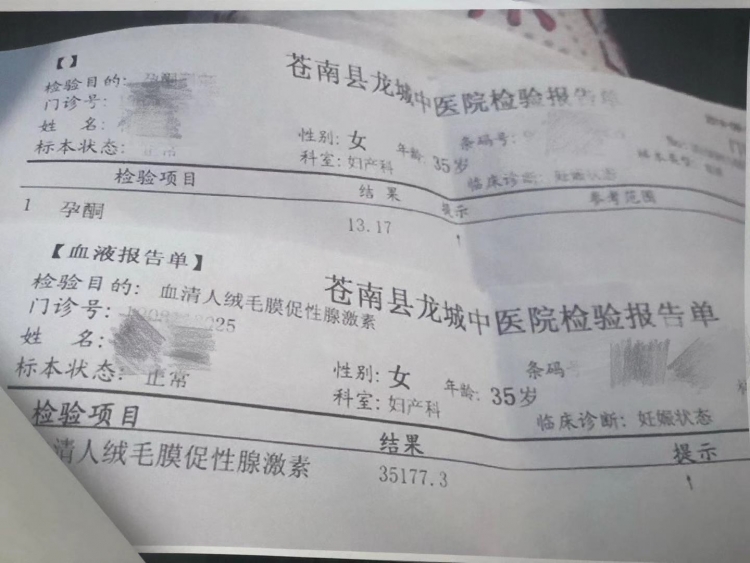 【】
苍南县龙城中医院检验报告单
检验目的: 孕酮
门诊号:
姓 名: 性别: 女 年龄: 35岁 条码号:
标本状态: 正常 科室: 妇产科 临床诊断: 妊娠状态
检验项目 结果 提示 参考范围
1 孕酮 13.17 ↑
【血液报告单】
苍南县龙城中医院检验报告单
检验目的: 血清人绒毛膜促性腺激素
门诊号:
姓 名: 性别: 女 年龄: 35岁 条码号
标本状态: 正常 科室: 妇产科 临床诊断: 妊娠状态
检验项目 结果 提示
清人绒毛膜促性腺激素 35177.3 ↑